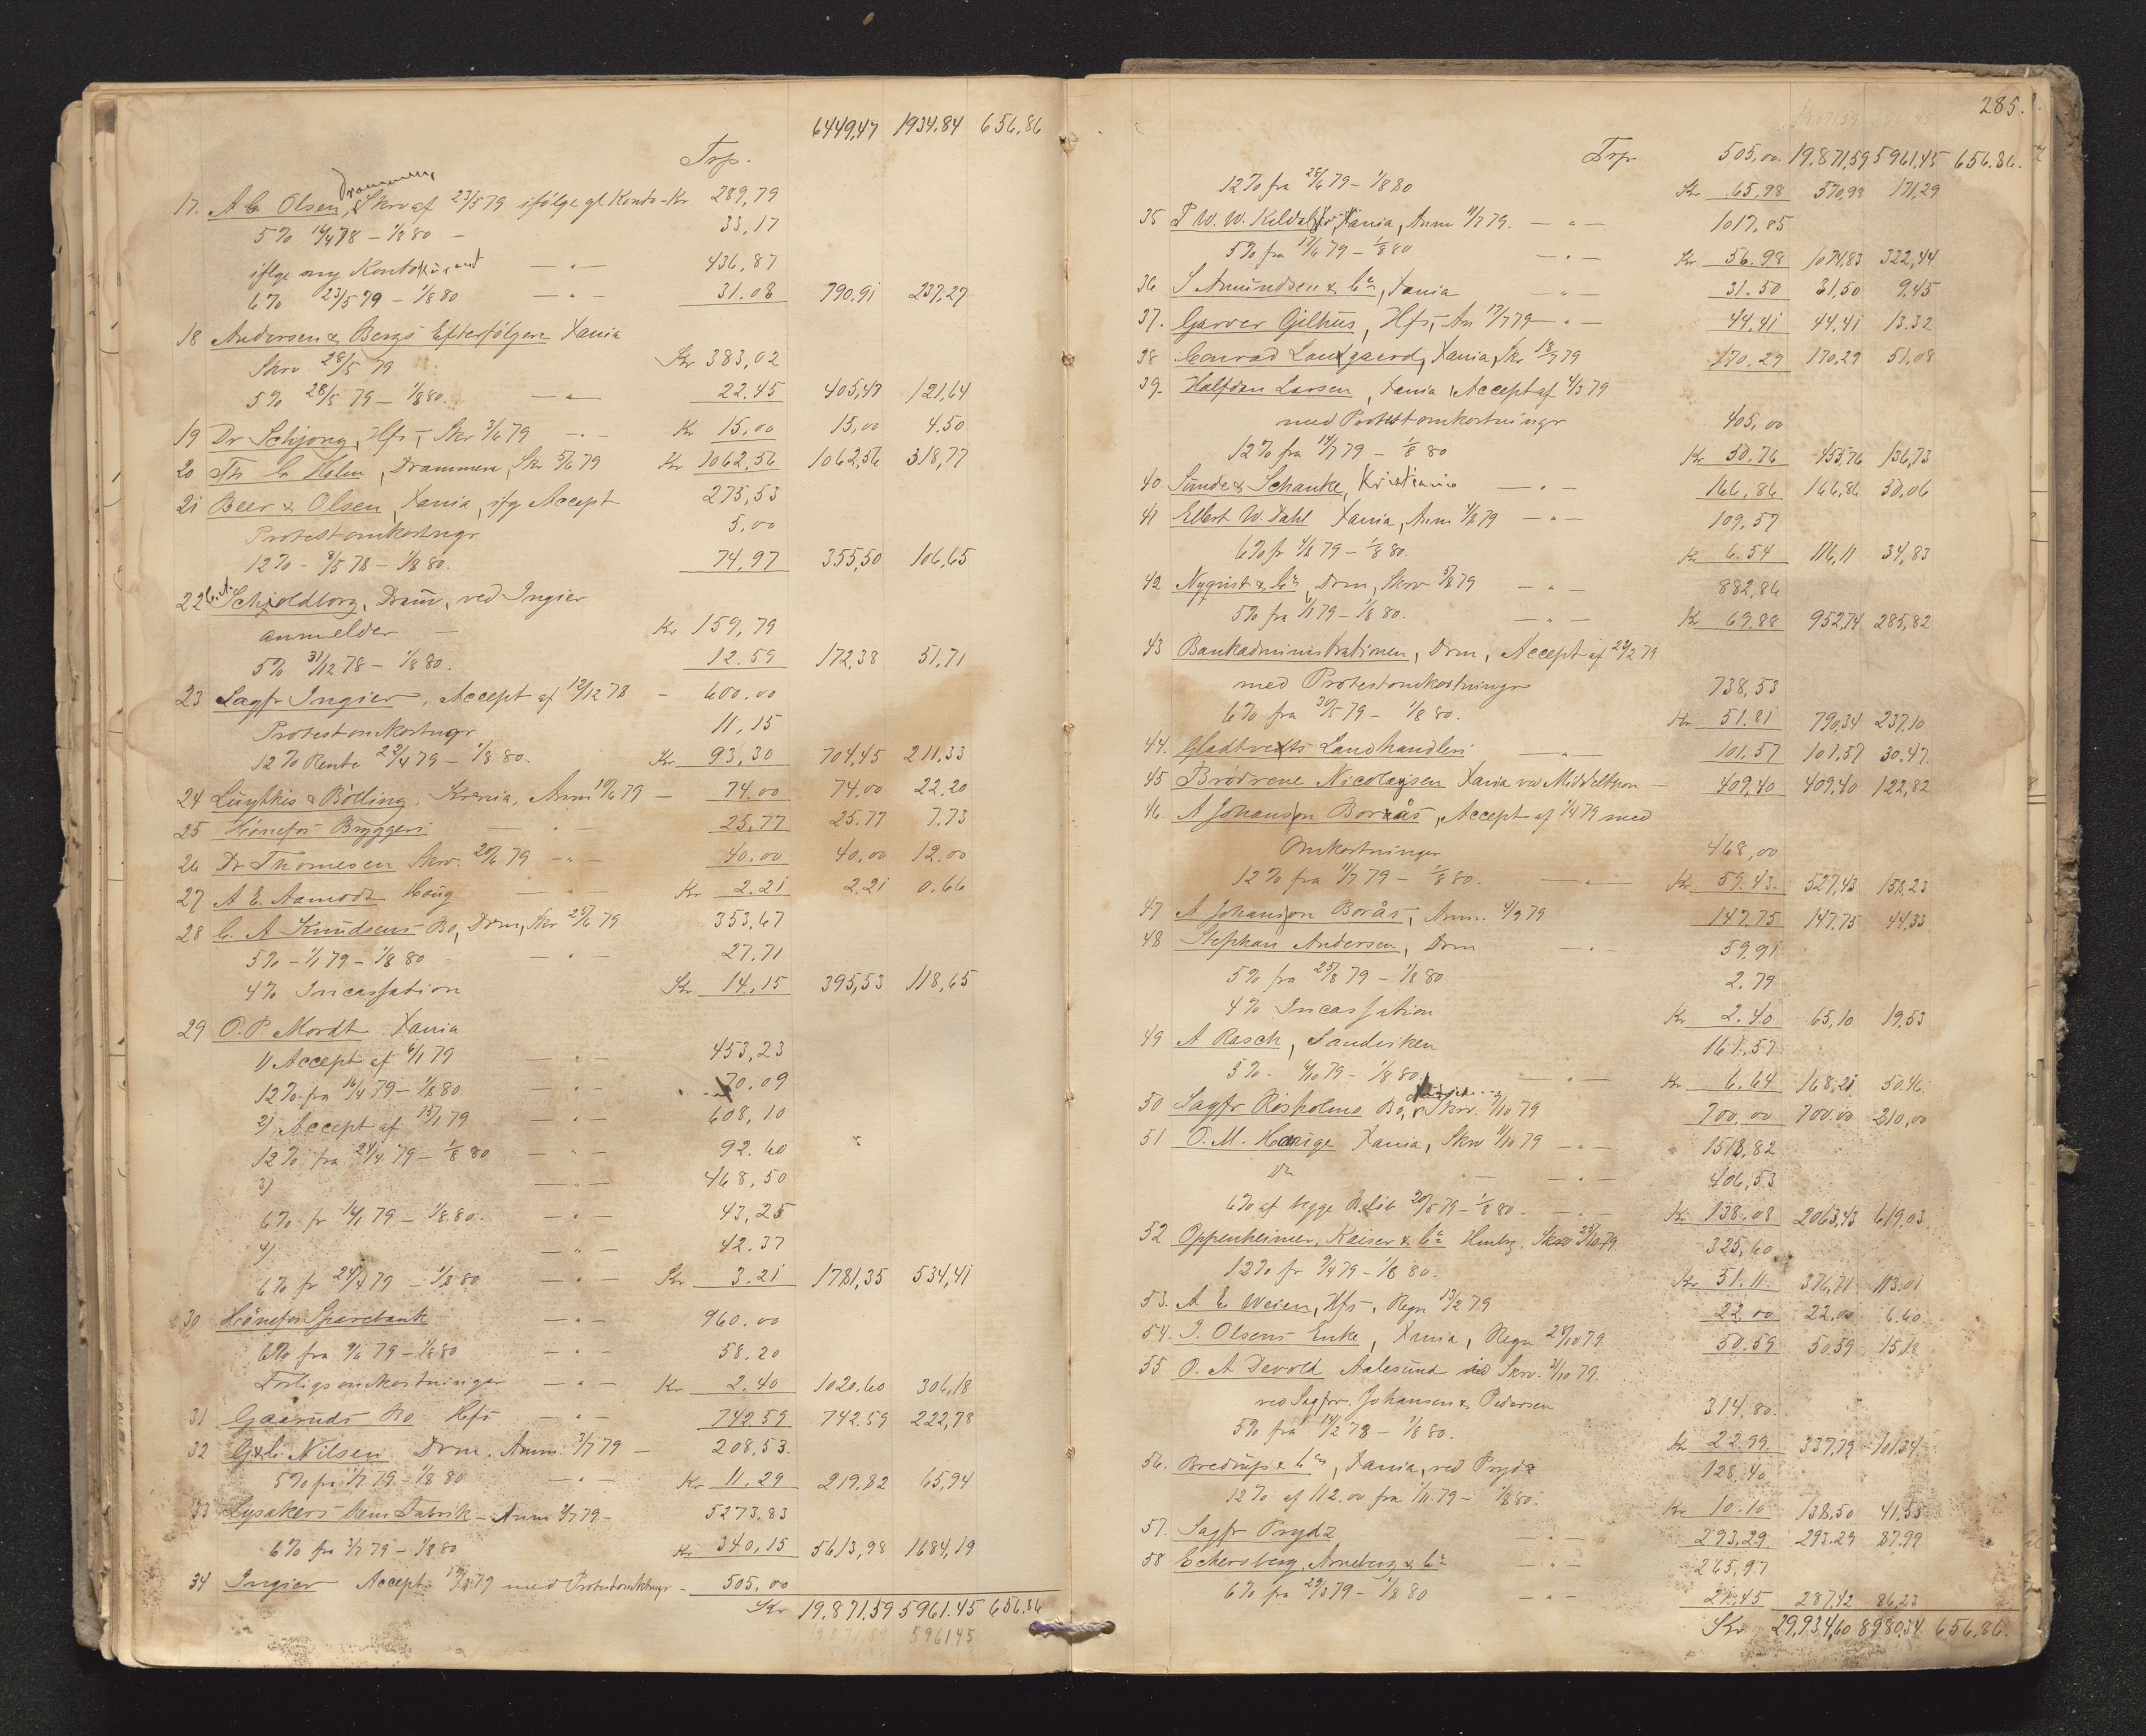 6449,47 1934.84 656,86
Trp.
17. A C. Olsen, Drammen, Skrv af 23/5 79 ifölge gl Konto - Kr 289,79
5% 14/4 78 – 1/8 80 – 33,17
iflge ny Konto — „ — 436,87
6% 23/5 79 – 1/8 80 — „ — 31.08 790.91 237,27
18 Andersen & Bergs Efterfölgere Xania
Skrv 28/5 79 Kr 383,02
5% 28/5 79 – 1/8 80. — „ — 22.45 405,47 121,64
19 Dr Schjong, Hfs, Skr 3/6 79 – „ – Kr 15,00 15,00 4.50
20 Th C Holm, Drammen, Skr 5/6 79 Kr 1062,56 1062,56 318,77
21 Beer & Olsen, Xania, ifg Accept 275,53
Protestomkostngr 5.00
12% – 8/5 78 – 1/8 80. 74,97 355,50 106,65
22 Schjoldborg, Dram, ved Ingier
anmelder – Kr 159,79
5% 31/12 78 – 1/8 80. 12.59 172,38 51,71
23 Sagfr Ingier, Accept af 12/12 78 – 600.00
Protestomkostngr. 11,15
12% Rente 22/4 79 – 1/8 80. Kr 93,30 704,45 211,33
24 Luytkis & Bölling, Krania, Anm 10/6 79 – 74.00 74,00 22,20
25 Hönefos Bryggeri — „ — 25,77 25.77 7.73
26 Dr Thomesen Skrv. 20/6 79 – „ – 40,00 40,00 12.00
27 A E. Aamodt Haug — „ — Kr 2.21 2.21 0.66
28 C. A Knudsens Bo, Drm, Skr 25/6 79 353,67
5% – 1/1 79 – 1/8 80 — „ — 27.71
4% Incassation Kr 14,15 395,53 118,65
29 O. P. Mordt Xania
1) Accept af 6/1 79 — „ — 453,23
12% fra 16/4 79 – 1/8 80 — „ — 70.09
2) Accept af 15/1 79 — „ — 608,10
12% fra 24/4 79 – 1/8 80 — „ — 92.60
3) — „ — 468,50
6% fr 16/1 79 – 1/8.80. — „ — 43,25
4) — „ — 42.37
6% fr 24/4 79 – 1/8 80 — „ — Kr 3.21 1781,35 534,41
30 Hönefos Sparebank — „ — 960.00
6% fra 9/6 79 – 1/8.80 — „ — 58,20
Forligsomkostninger — „ — Kr 2.40 1020.60 306,18
31 Gaaruds Bo Hfs — „ — 742 59 742.59 222,78
32 G & C. Nilsen Drm. Anm. 3/7 79 – 208,53.
5% fra 1/7 79 – 1/8 80 — „ — Kr 11.29 219.82 65,94
33 Lysakers kem Fabrik – Anm 4/7 79 – 5273,83
6% fra 3/7 79 – 1/8 80 Kr 340,15 5613,98 1684,19
34 Ingier Accept 79 med Protestomkstngr – 505,00
Kr 19.871,59 5961.45 656.86
285.
Trp 505,00 19,871,59 5961,45 656,86.
12% fra 28/6 79 – 1/8 80 Kr 65,98 570,98 171,29
35 P W. W. Kildal, Xania, Anm 11/7 79. – „ – 1017,85
5% fra 17/6 79 – 1/8 80 – „ – Kr 56.98 1074,83 322,44
36 S Amundsen & Co, Xania – „ – 31.50 31,50 9.45
37. Garver Gilhus, Hfs, An 17/7 79 – „ – 44,41 44,41 13.32
38 Conrad Langaard, Xania, Skr 18/7 79 170.29 170,29 51,08
39. Halfdan Larsen, Xania, Accept af 4/3 79
med Protestomkostningr 405,00
12% fra 14/7 79 – 1/8 80 Kr 50.76 455,76 136,73
40 Sunde & Schanke, Kristiania – „ – 166,86 166,86 50,06
41 Ellert W. Dahl Xania, Anm 4/8 79 – „ – 109,57
6% fr 4/8 79 – 1/8 80. Kr 6.54 116,11 34,83
42 Nyqvist & Co, Drm, Skrv 5/8 79 – „ – 882,86
5% fra 1/1 79 – 1/8 80. – „ – Kr 69,88 952,74 285,82
43 Bankadministrationen, Drm, Accept af 22/2 79
med Protestomkostninger 738,53
6% fra 30/5 79 – 1/8 80. Kr 51.81 790,34 237,10
44. Gladtvedts Landhandleri — „ — 101,57 101,57 30.47
45 Brödrene Nicolaysen Xania ved Middelthon – 409,40 409,40 122,82
46. A Johanson Borås, Accept af 1/4 79 med
Omkostninger 468,00
12% fra 11/7 79 – 1/8 80. — „ — Kr 59.43. 527,43 158,23
47 A Johanson Borås, Anm. 4/9 79 147.75 147.75 44,33
48 Stephan Andersen, Drm – „ – 59,91
5% fra 25/8 79 – 1/8 80 2.79
4% Incassation Kr 2.40 65,10 19,53
49 A Rasch, Sandviken 161.57
5% – 4/10 79 – 1/8 80 – „ – Kr 6.64 168,21 50.46
50 Sagfr Risholms Bo, Skrv. 7/10 79 700.00 700.00 210,00
51 O. M. Hauge Xania, Skrv 11/10 79 – „ – 1518,82
Do – „ – 406,53
6% af begge Beløb 20/5 79 – 1/8 80. – „ – Kr 138,08 2063,43 619,03
52 Oppenheimer, Kaiser & Co Hmbg. Skrv 25/10 79 325,60
12% fr 9/4 79 – 1/8 80. Kr 51.11 376,71 113.01
53. A E Weien, Hfs, Regn 13/2 79 22,00 22.00 6.60
54. J. Olsens Enke, Xania, Regn 28/10 79 50.59 50,59 15,18
55 O. A Devold Aalesund Skrv. 31/10 79.
ved Sagfrr. Johansen & Pedersen 314,80.
5% fra 14/2 78 – 1/8 80. Kr 22.99. 337,79 101.34
56. Bredrup & Co, Xania, ved Prydz 128,40
12% af 112,00 fra 1/11 79 – 1/8 80. Kr 10.10 138,50 41,55
57. Sagfr Prydz – „ – 293,29. 293.29 87.99
58 Eckersberg, Arneberg & Co – „ – 265,97
6% fra 29/3 79 – 1/8 80 – „ – 21.45 287,42 86,23
Kr 29,934,60 8980,34 656,86.